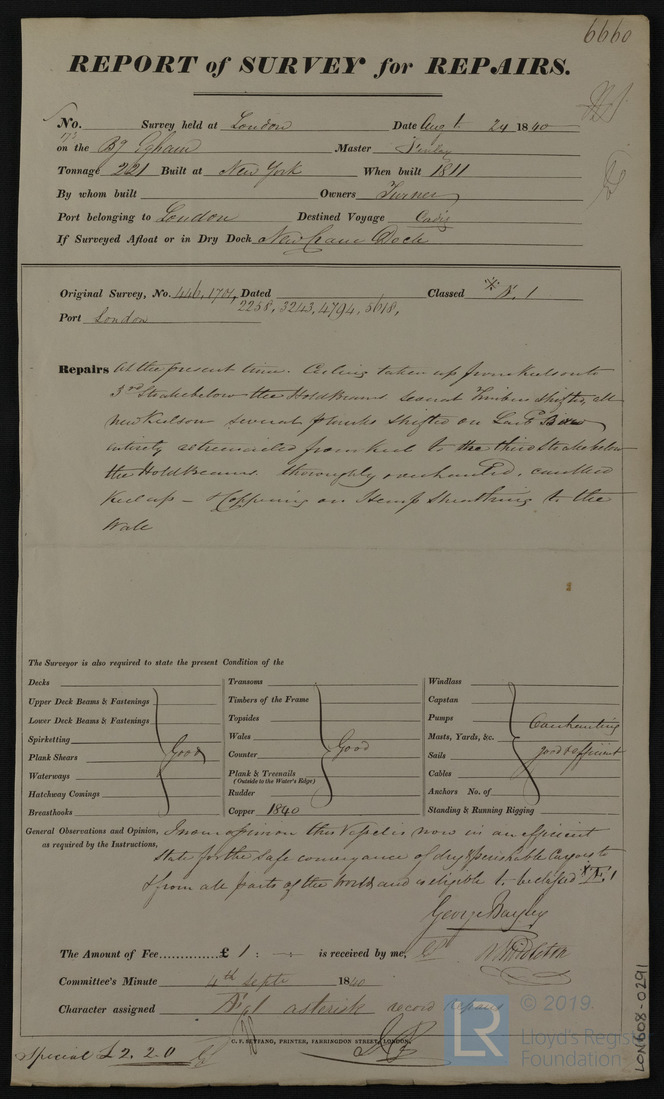 6660
REPORT of SURVEY for REPAIRS.
No. Survey held at London Date Augt. 24 1840
on the Bg Egham Master Finlay
Tonnage 221 Built at New York When built 1811
By whom built Owners Turner
Port belonging to London Destined Voyage Cadiz
If Surveyed Afloat or in Dry Dock New Crane Dock
Original Survey, No. 446, 1701, Dated 2258, 3243, 4794, 5618, Classed Æ. 1
Port London
Repairs At the present time. Ceiling taken up from Keelson to
3rd Strake below the Hold Beams several Timbers shifted, all
new Keelson several planks shifted on Larbd Bow
entirely retreenailed from keel to the third Strake below
the Hold Beams. thoroughly overhauled, caulked
Keel up – Coppering on Hemp Sheathing to the
Wale
The Surveyor is also required to state the present Condition of the
Decks
Upper Deck Beams & Fastenings
Lower Deck Beams & Fastenings
Spirketting
Plank Shears
Waterways
Hatchway Comings
Breasthooks
Good
Transoms
Timbers of the Frame
Topsides
Wales
Counter
Plank & Treenails
(Outside to the Water's Edge)
Rudder
Good
Copper 1840
Windlass
Capstan
Pumps
Masts, Yards, &c.
Sails
Cables
Anchors No. of
Standing & Running Rigging
good & efficient
General Observations and Opinion, In our opinion this Vessel is now in an efficient
as required by the Instructions, State for the safe conveyance of dry & perishable Cargoes to
& from all parts of the World and is eligible to be classed Æ. 1
George Bayley
The Amount of Fee £ 1 : – is received by me, N. Middleton
Committee's Minute 4th Septr 1840
Character assigned Æ 1 asterisk record repairs
C. F. SEYFANG, PRINTER, FARRINGDON STREET, LONDON.
Special £2.2.0
LR
© 2019.
Lloyd's Register
Foundation
LON608-0291